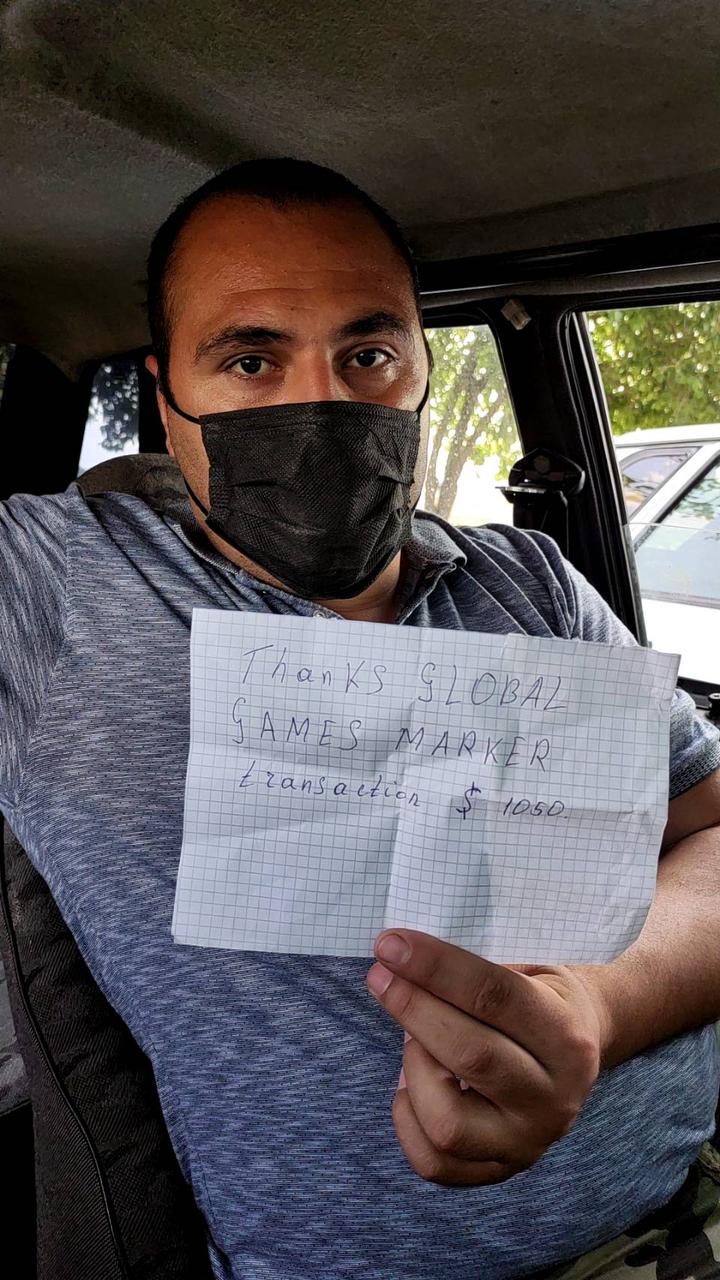 Thanks GLOBAL
GAMES MARKER
transaction $ 1050.